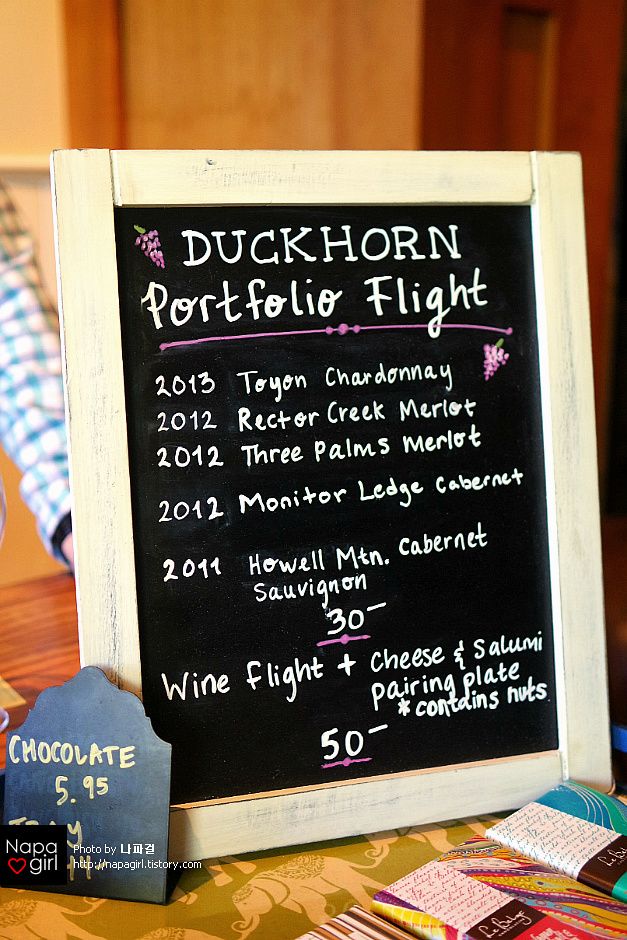 DUCKHORN
Portfolio Flight
2013 Toyon Chardonnay
2012 Rector Creek Merlot
2012 Three Palms Merlot
2012 Monitor Ledge Cabernet
2011 Howell Mtn. Cabernet
Sauvignon
30—
Wine flight + Cheese & Salumi
pairing plate
*contains nuts
50—
CHOCOLATE
5.95
Napa
girl
Photo by 나파걸
http://napagirl.tistory.com